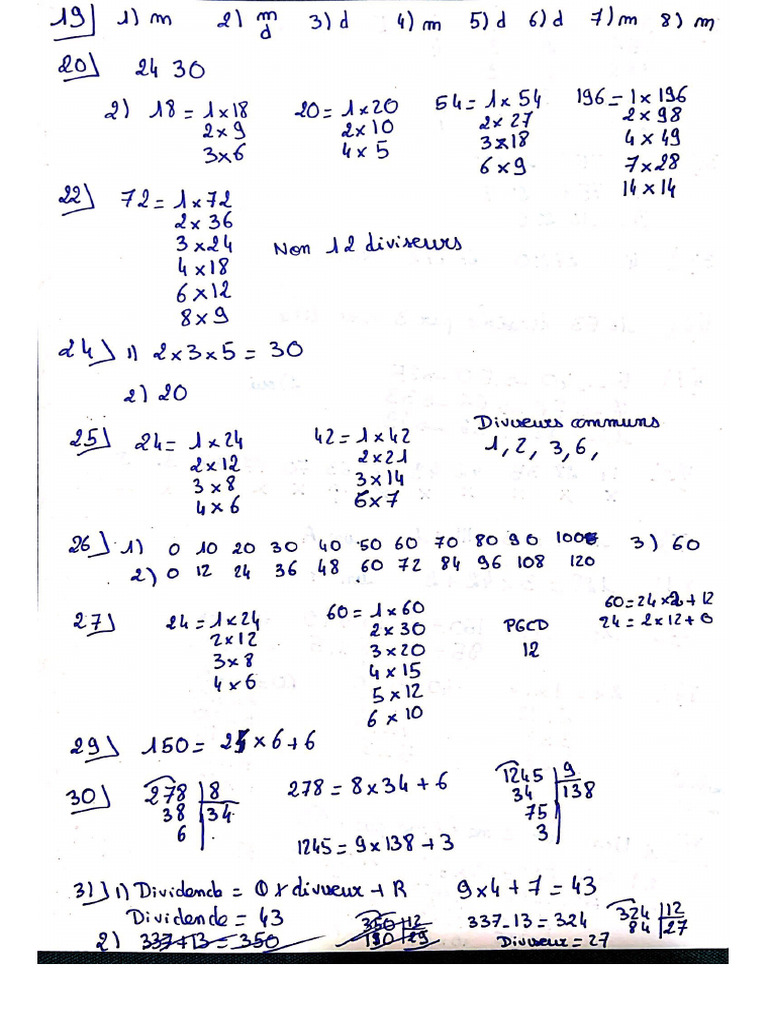 19) 1) m 2) m/d 3) d 4) m 5) d 6) d 7) m 8) m
20) 24 30
2) 18 = 1 x 18 20 = 1 x 20 54 = 1 x 54 196 = 1 x 196
2 x 9 2 x 10 2 x 27 2 x 98
3 x 6 4 x 5 3 x 18 4 x 49
6 x 9 7 x 28
14 x 14
22) 72 = 1 x 72
2 x 36
3 x 24 Non 12 diviseurs
4 x 18
6 x 12
8 x 9
24) 1) 2 x 3 x 5 = 30
2) 20
25) 24 = 1 x 24 42 = 1 x 42 Diviseurs communs
2 x 12 2 x 21 1, 2, 3, 6,
3 x 8 3 x 14
4 x 6 6 x 7
26) 1) 0 10 20 30 40 50 60 70 80 90 100 3) 60
2) 0 12 24 36 48 60 72 84 96 108 120
27) 24 = 1 x 24 60 = 1 x 60 PGCD 60 = 24 x 2 + 12
2 x 12 2 x 30 12 24 = 2 x 12 + 0
3 x 8 3 x 20
4 x 6 4 x 15
5 x 12
6 x 10
29) 150 = 24 x 6 + 6
30) 278 | 8 278 = 8 x 34 + 6 1245 | 9
38 | 34 34 | 138
6 75
1245 = 9 x 138 + 3 3
31) 1) Dividende = Q x diviseux + R 9 x 4 + 7 = 43
Dividende = 43 350 | 12 337 - 13 = 324 324 | 12
2) 337 + 13 = 350 190 | 29 Diviseux = 27 84 | 27